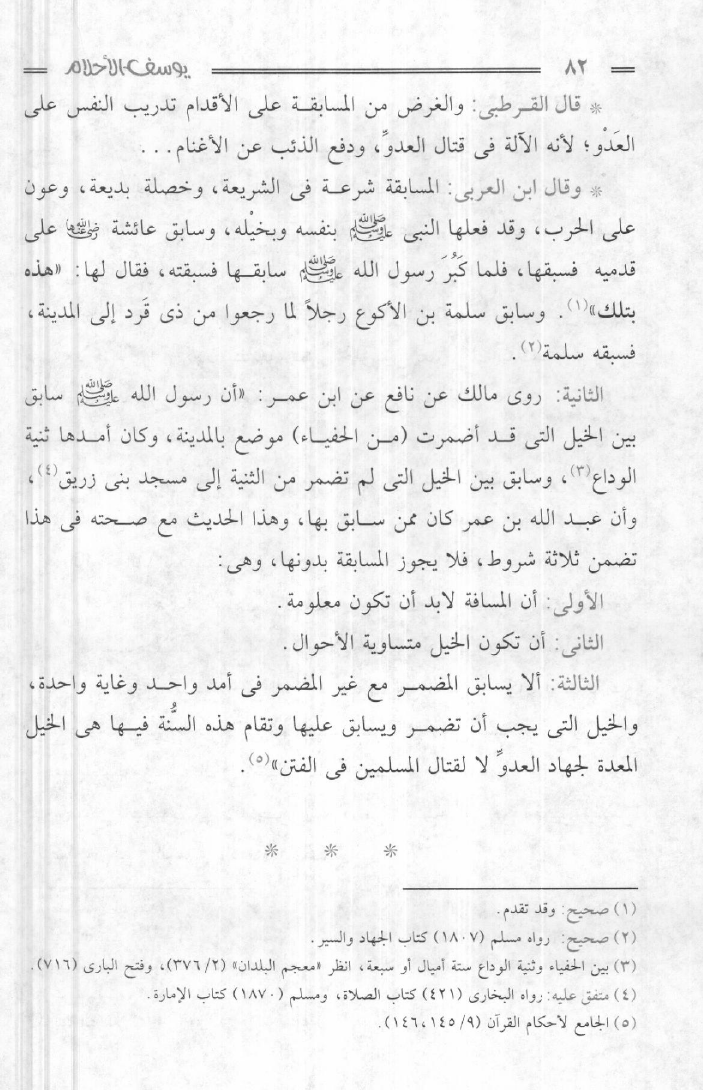 ٨٢ يوسف الأحلام
* قال القرطبى: والغرض من المسابقة على الأقدام تدريب النفس على
العَدْو؛ لأنه الآلة فى قتال العدوِّ، ودفع الذئب عن الأغنام . . .
* وقال ابن العربى: المسابقة شرعة فى الشريعة، وخصلة بديعة، وعون
على الحرب، وقد فعلها النبى ﷺ بنفسه وبخيْله، وسابق عائشة رضي الله عنها على
قدميه فسبقها، فلما كَبُرَ رسول الله ﷺ سابقها فسبقته، فقال لها: «هذه
بتلك»(١). وسابق سلمة بن الأكوع رجلاً لما رجعوا من ذى قَرد إلى المدينة،
فسبقه سلمة(٢).
الثانية: روى مالك عن نافع عن ابن عمر: «أن رسول الله ﷺ سابق
بين الخيل التى قد أضمرت (من الحفياء) موضع بالمدينة، وكان أمدها ثنية
الوداع(٣)، وسابق بين الخيل التى لم تضمر من الثنية إلى مسجد بنى زريق(٤)،
وأن عبد الله بن عمر كان ممن سابق بها، وهذا الحديث مع صحته فى هذا
تضمن ثلاثة شروط، فلا يجوز المسابقة بدونها، وهى:
الأولى: أن المسافة لابد أن تكون معلومة.
الثانى: أن تكون الخيل متساوية الأحوال.
الثالثة: ألا يسابق المضمر مع غير المضمر فى أمد واحد وغاية واحدة،
والخيل التى يجب أن تضمر ويسابق عليها وتقام هذه السُّنة فيها هى الخيل
المعدة لجهاد العدوِّ لا لقتال المسلمين فى الفتن»(٥).
* * *
(١) صحيح: وقد تقدم.
(٢) صحيح: رواه مسلم (١٨٠٧) كتاب الجهاد والسير.
(٣) بين الحفياء وثنية الوداع ستة أميال أو سبعة، انظر «معجم البلدان» (٢/ ٣٧٦)، وفتح البارى (٧١٦).
(٤) متفق عليه: رواه البخارى (٤٢١) كتاب الصلاة، ومسلم (١٨٧٠) كتاب الإمارة.
(٥) الجامع لأحكام القرآن (٩/ ١٤٥، ١٤٦).